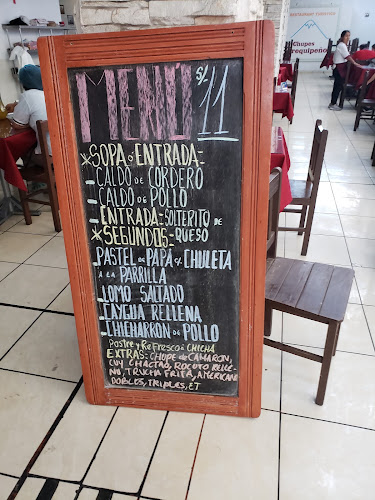 RESTAURANT TURISTICO
Chupes
Arequipeños
MENÚ S/. 11
*SOPA O ENTRADA=
-CALDO DE CORDERO
-CALDO DE POLLO
-ENTRADA=SOLTERITO DE
QUESO
*SEGUNDOS=
-PASTEL DE PAPA C/ CHULETA
A LA PARRILLA
-LOMO SALTADO
-CAYGUA RELLENA
-CHICHARRON DE POLLO
Postre y Refresco = CHICHA
EXTRAS: CHUPE de CAMARON,
CUY CHACTAO, ROCOTO RELLE-
NO, TRUCHA FRITA, AMERICANO
DOBLES, TRIPLES, ET